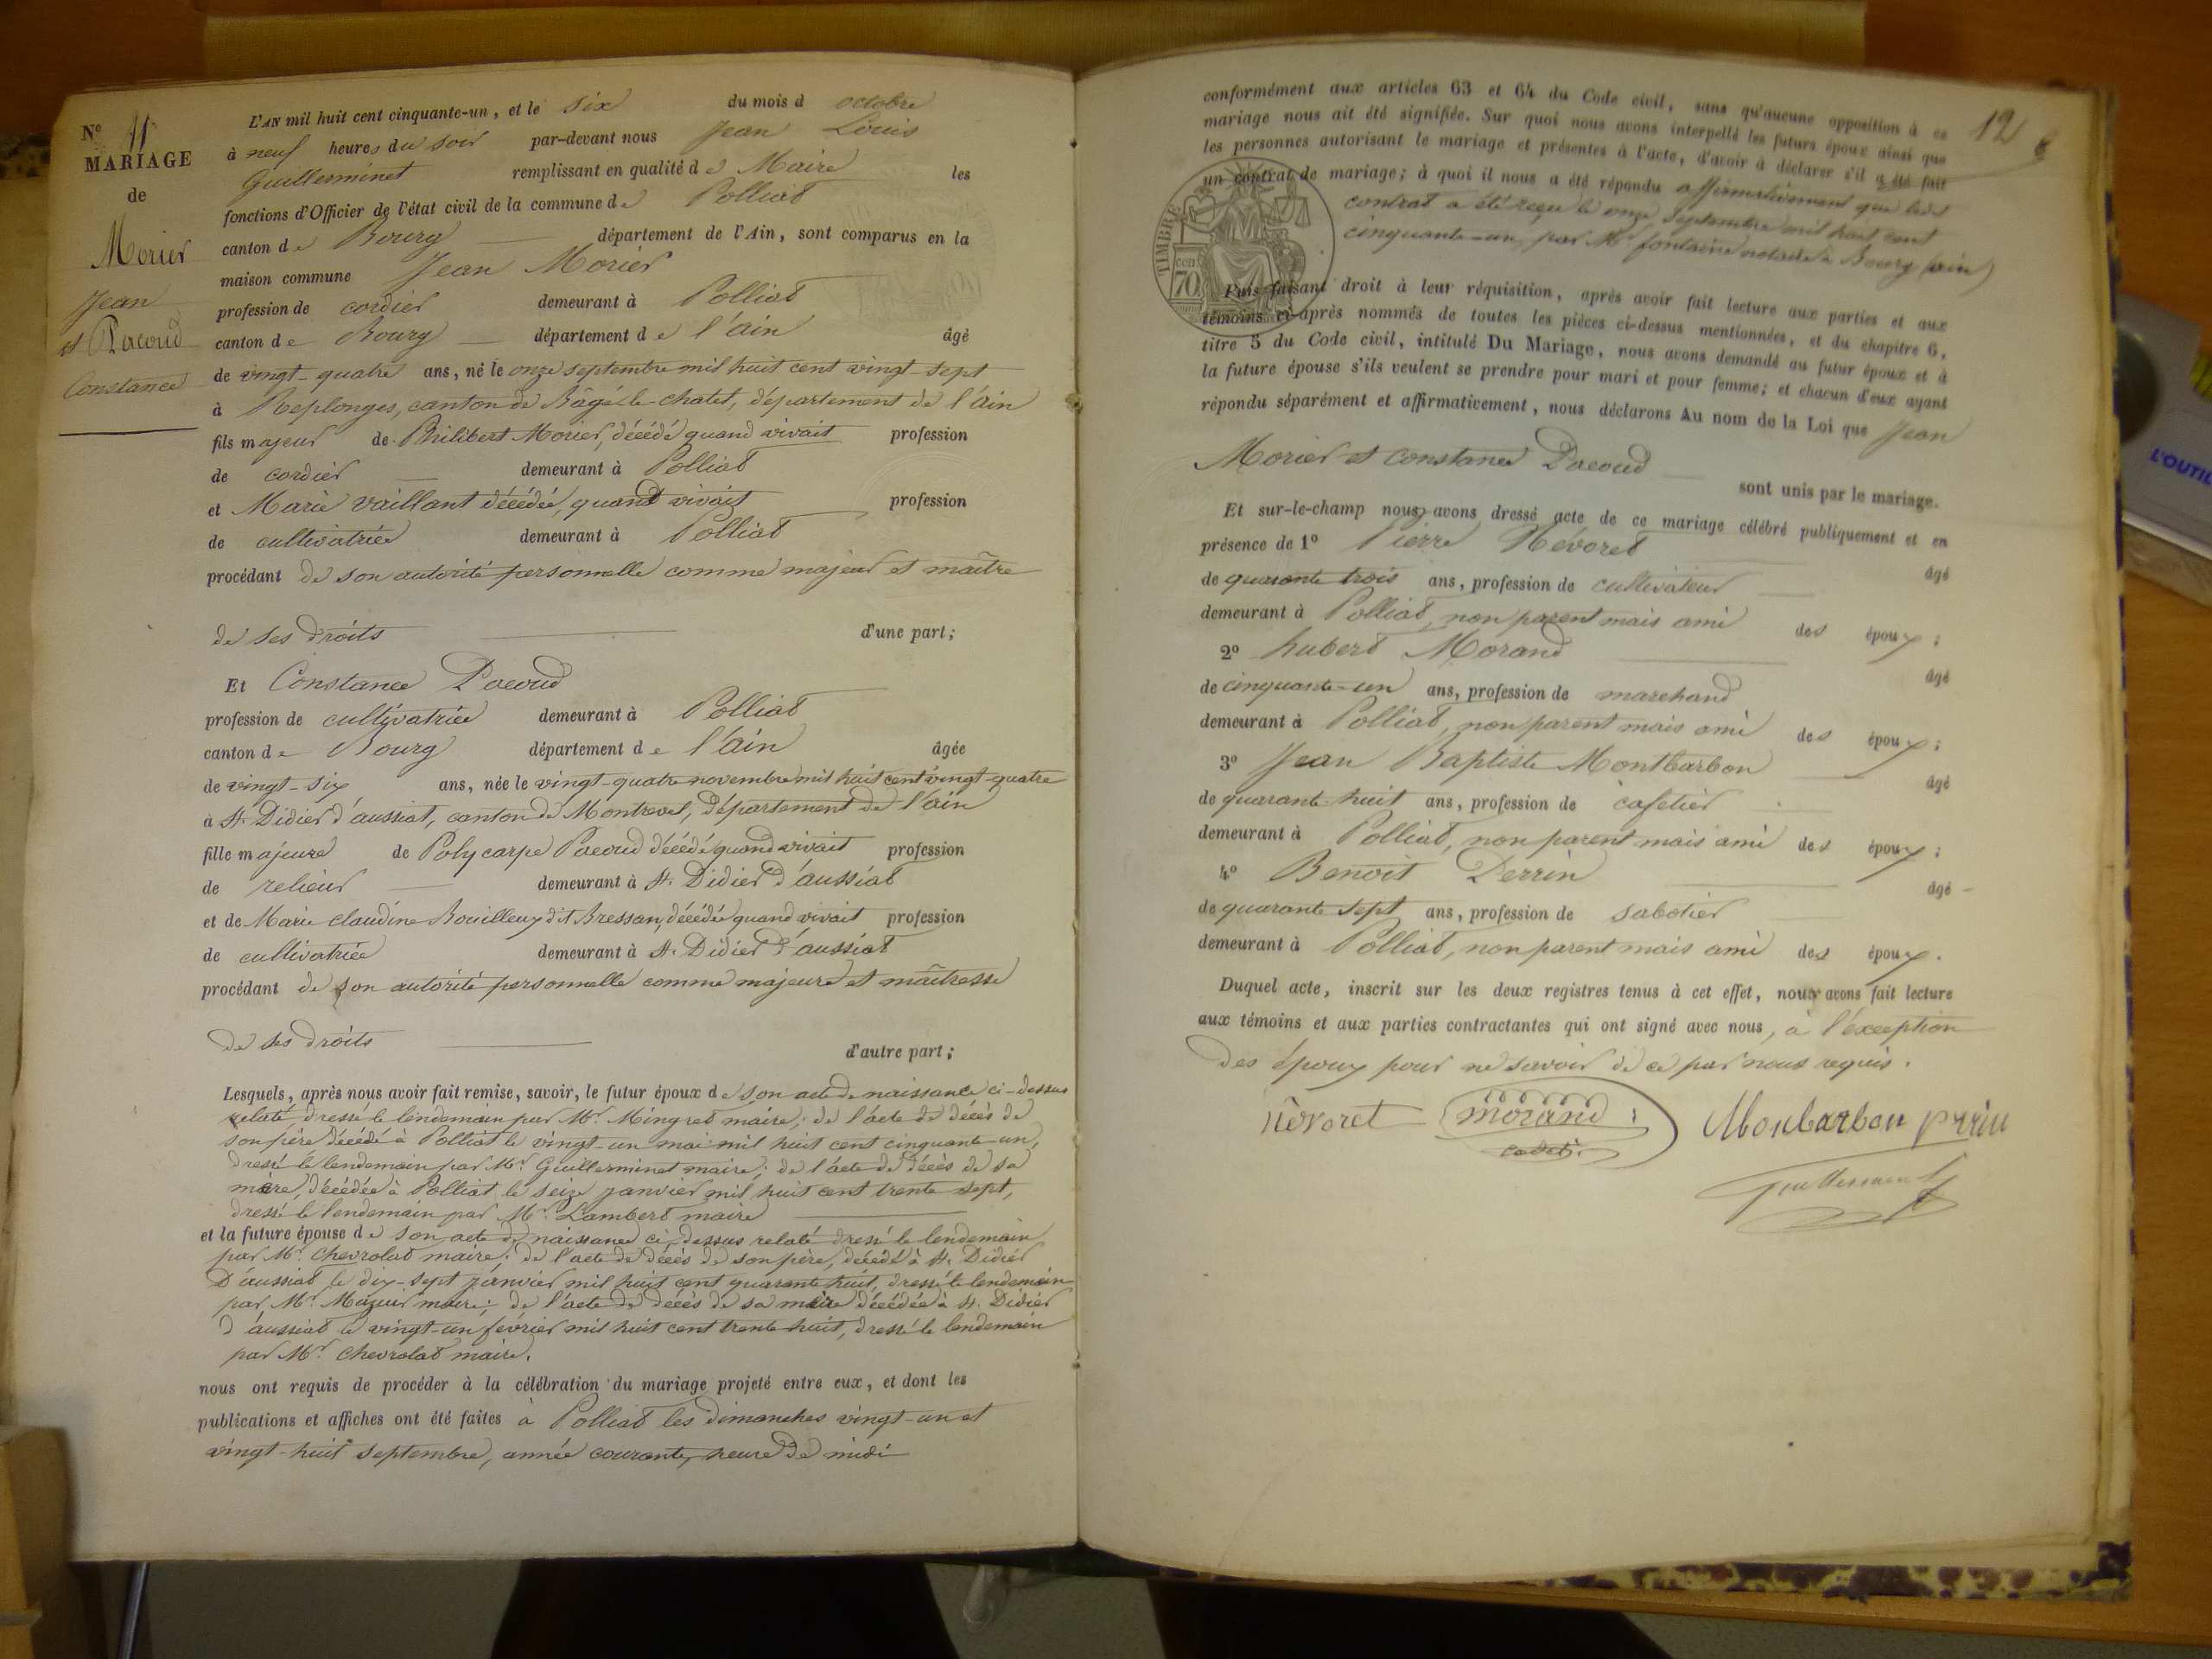 N° 11
MARIAGE
de
Morier
Jean
et Pacoud
Constance
L'AN mil huit cent cinquante-un, et le six du mois d octobre
à neuf heures du soir par-devant nous Jean Louis
Guillerminet remplissant en qualité de Maire les
fonctions d'Officier de l'état civil de la commune de Polliat
canton de Bourg département de l'Ain, sont comparus en la
maison commune Jean Morier
profession de cordier demeurant à Polliat
canton de Bourg département de l'ain âgé
de vingt-quatre ans, né le onze septembre mil huit cent vingt-sept
à Replonges, canton de Bâgé-le-chatel, département de l'ain
fils majeur de Philibert Morier, décédé quand vivait profession
de cordier demeurant à Polliat
et Marie vaillant décédée, quand vivait profession
de cultivatrice demeurant à Polliat
procédant de son autorité personnelle comme majeur et maître
de ses droits d'une part;
Et Constance Pacoud
profession de cultivatrice demeurant à Polliat
canton de Bourg département de l'ain âgée
de vingt-six ans, née le vingt-quatre novembre mil huit cent vingt-quatre
à St Didier d'aussiat, canton de Montrevel, département de l'ain
fille majeure de Polycarpe Pacoud décédé quand vivait profession
de relieur demeurant à St. Didier d'aussiat
et de Marie claudine Bouilleux dit Bressan, décédée quand vivait profession
de cultivatrice demeurant à St. Didier d'aussiat
procédant de son autorité personnelle comme majeure et maîtresse
de ses droits d'autre part;
Lesquels, après nous avoir fait remise, savoir, le futur époux de son acte de naissance ci-dessus
relaté, dressé le lendemain par Mr. Mingret maire; de l'acte de décès de
son père décédé à Polliat le vingt-un mai mil huit cent cinquante-un,
dressé le lendemain par Mr. Guillerminet maire; de l'acte de décès de sa
mère, décédée à Polliat le seize janvier mil huit cent trente sept,
dressé le lendemain par Mr. Lambert maire
et la future épouse de son acte de naissance ci-dessus relaté dressé le lendemain
par Mr. chevrolat maire; de l'acte de décès de son père, décédé à St. Didier
D'aussiat le dix-sept janvier mil huit cent quarante huit, dressé le lendemain
par Mr. Mazuir maire; de l'acte de décès de sa mère décédée à St. Didier
d'aussiat le vingt-un fevrier mil huit cent trente huit, dressé le lendemain
par Mr. chevrolat maire.
nous ont requis de procéder à la célébration du mariage projeté entre eux, et dont les
publications et affiches ont été faites à Polliat les dimanches vingt-un et
vingt-huit septembre, année courante, heure de midi
12
conformément aux articles 63 et 64 du Code civil, sans qu'aucune opposition à ce
mariage nous ait été signifiée. Sur quoi nous avons interpellé les futurs époux ainsi que
les personnes autorisant le mariage et présentes à l'acte, d'avoir à déclarer s'il a été fait
un contrat de mariage; à quoi il nous a été répondu affirmativement que ledit
contrat a été reçu le onze septembre mil huit cent
cinquante-un, par Mr fontaine notaire à Bourg (ain)
TIMBRE
70
Puis faisant droit à leur réquisition, après avoir fait lecture aux parties et aux
témoins ci-après nommés de toutes les pièces ci-dessus mentionnées, et du chapitre 6,
titre 5 du Code civil, intitulé Du Mariage, nous avons demandé au futur époux et à
la future épouse s'ils veulent se prendre pour mari et pour femme; et chacun d'eux ayant
répondu séparément et affirmativement, nous déclarons Au nom de la Loi que Jean
Morier et constance Pacoud sont unis par le mariage.
Et sur-le-champ nous avons dressé acte de ce mariage célébré publiquement et en
présence de 1° Pierre Nevoret âgé
de quarante trois ans, profession de cultivateur
demeurant à Polliat, non parent mais ami des époux;
2° hubert Morand âgé
de cinquante-un ans, profession de marchand
demeurant à Polliat, non parent mais ami des époux;
3° Jean Baptiste Montbarbon âgé
de quarante-huit ans, profession de cafetier
demeurant à Polliat, non parent mais ami des époux;
4° Benoit Perrin âgé
de quarante sept ans, profession de sabotier
demeurant à Polliat, non parent mais ami des époux.
Duquel acte, inscrit sur les deux registres tenus à cet effet, nous avons fait lecture
aux témoins et aux parties contractantes qui ont signé avec nous, à l'exception
des époux pour ne savoir de ce par nous requis.
Nèvoret morand Monbarbon périn
cadet
Guillerminet
L'OUTIL